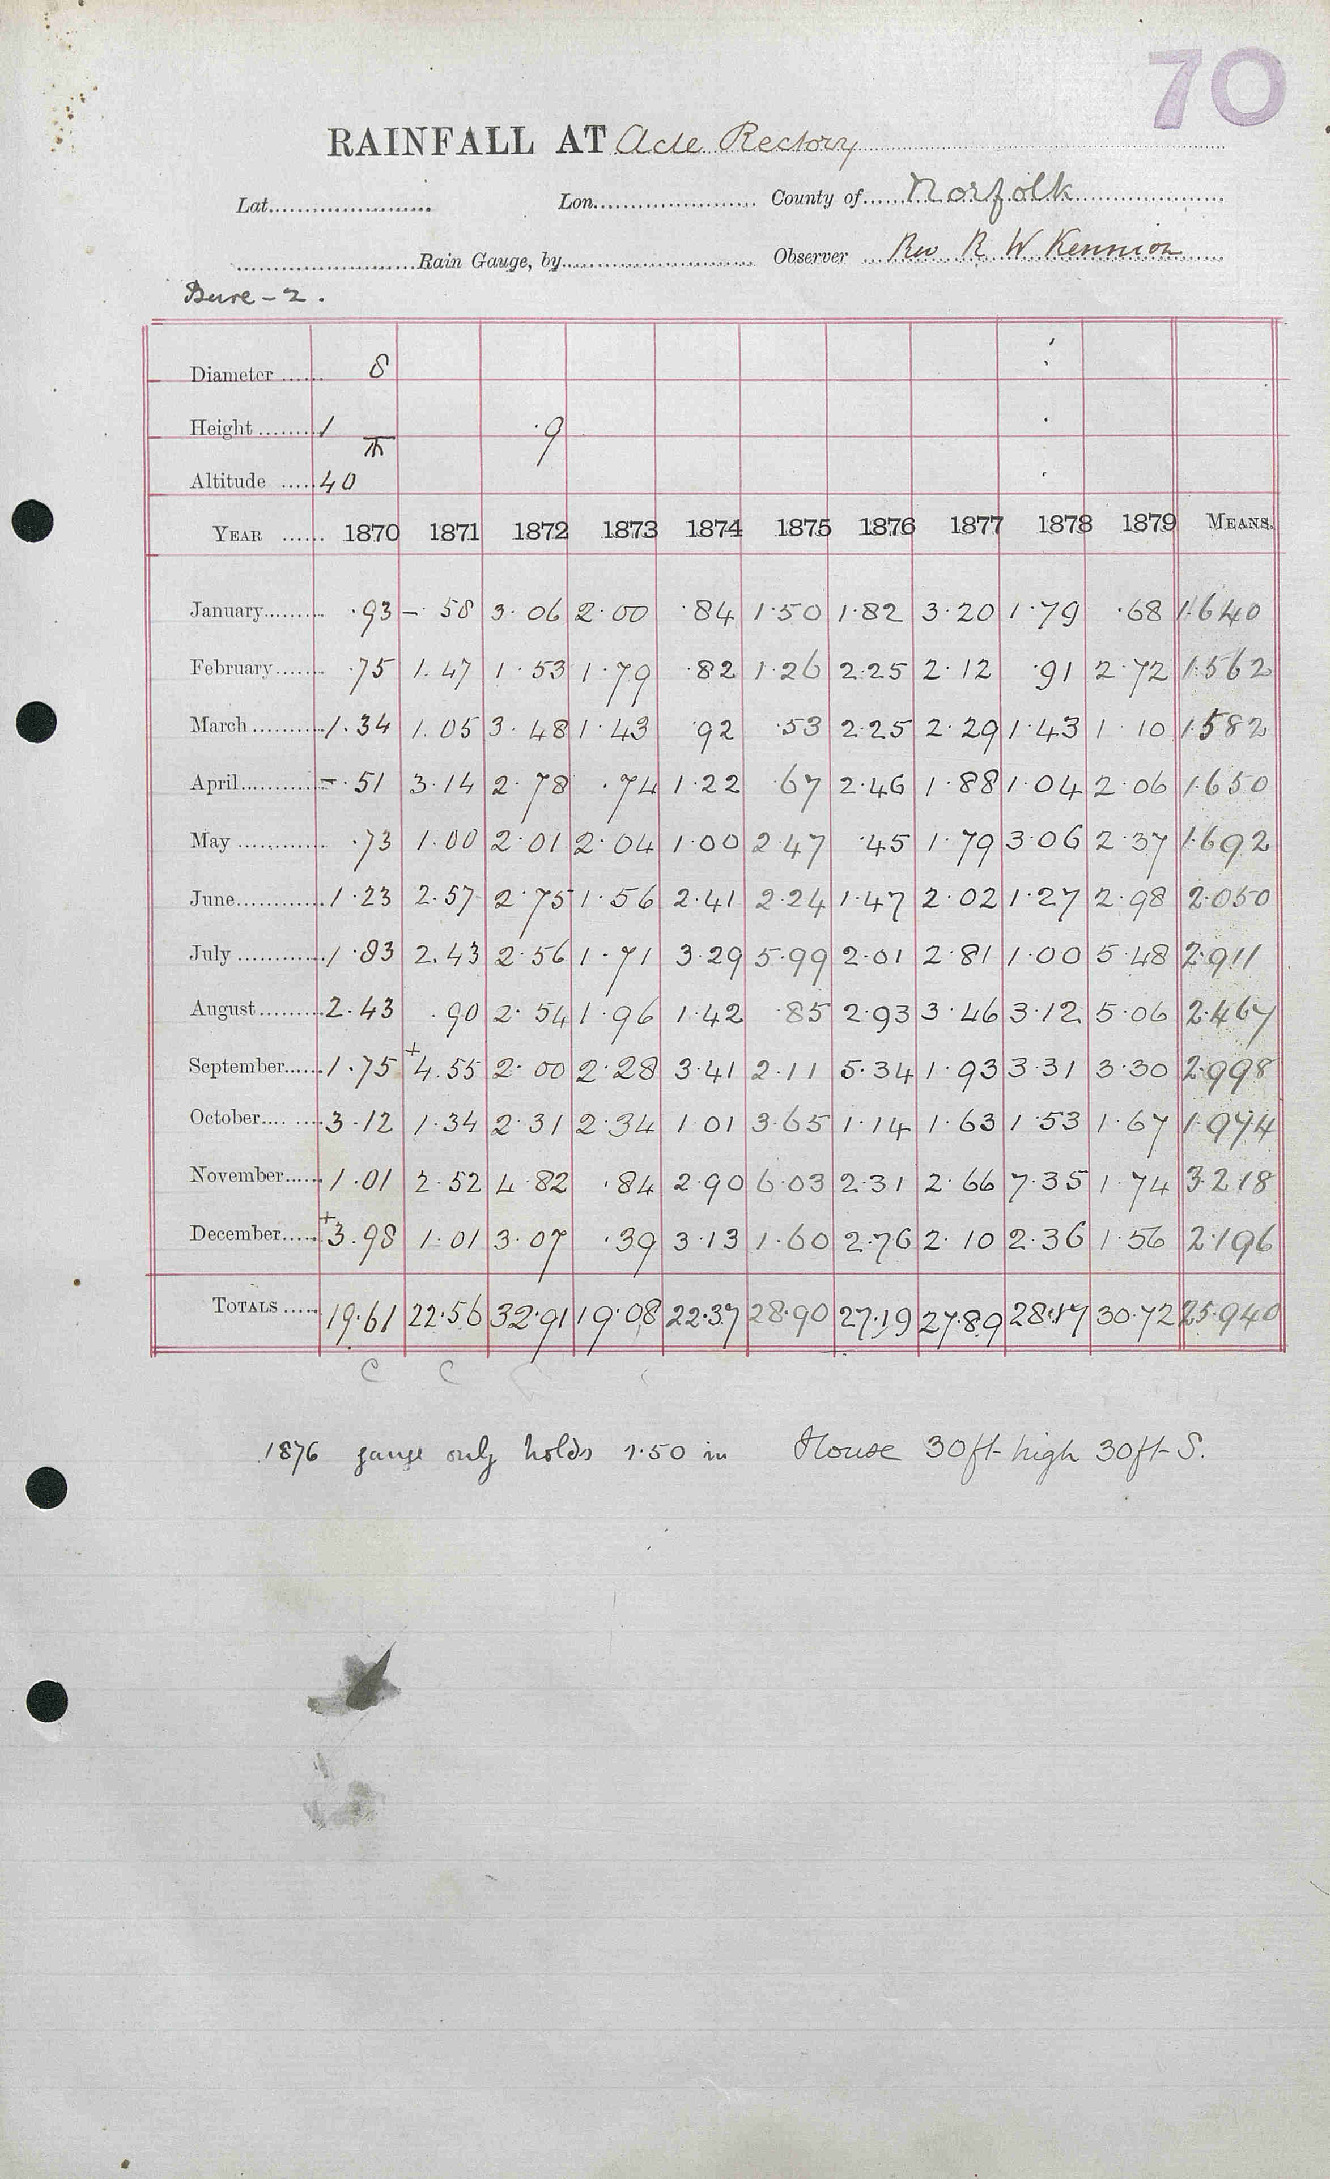 70
RAINFALL AT Acle Rectory
Lat. Lon. County of Norfolk
Rain Gauge, by Observer Rev R W Kennion
Bure - 2.
Diameter 8
Height 1 ·9
Altitude 40
YEAR 1870 1871 1872 1873 1874 1875 1876 1877 1878 1879 MEANS.
January ·93 – ·58 3·06 2·00 ·84 1·50 1·82 3·20 1·79 ·68 1·640
February ·75 1.47 1·53 1·79 ·82 1·26 2·25 2·12 ·91 2·72 1·562
March 1·34 1.05 3·48 1·43 ·92 ·53 2·25 2·29 1·43 1·10 1·582
April – ·51 3·14 2·78 ·74 1·22 ·67 2·46 1·88 1·04 2·06 1·650
May ·73 1·00 2·01 2·04 1·00 2·47 ·45 1·79 3·06 2·37 1·692
June 1·23 2·57 2·75 1·56 2·41 2·24 1·47 2·02 1·27 2·98 2·050
July 1·83 2.43 2·56 1·71 3·29 5·99 2·01 2·81 1·00 5·48 2·911
August 2·43 .90 2·54 1·96 1·42 ·85 2·93 3·46 3·12 5·06 2·467
September 1·75 +4.55 2·00 2·28 3·41 2·11 5·34 1·93 3·31 3·30 2·998
October 3·12 1·34 2·31 2·34 1·01 3·65 1·14 1·63 1·53 1·67 1·974
November 1·01 2·52 4·82 ·84 2·90 6·03 2·31 2·66 7·35 1·74 3·218
December +3.98 1·01 3·07 ·39 3·13 1·60 2·76 2·10 2·36 1·56 2·196
TOTALS 19·61 22·56 32·91 19·08 22·37 28·90 27·19 27·89 28·17 30·72 25·940
C C
1876 gauge only holds 1·50 in House 30ft high 30ft S.